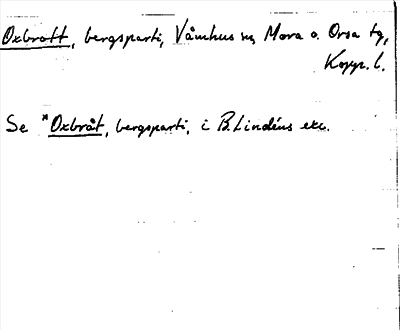 Oxbratt, bergsparti, Våmhus sn, Mora o. Orsa tg,
Kopp. l.
Se *Oxbråt, bergsparti, i B. Lindéns exc.